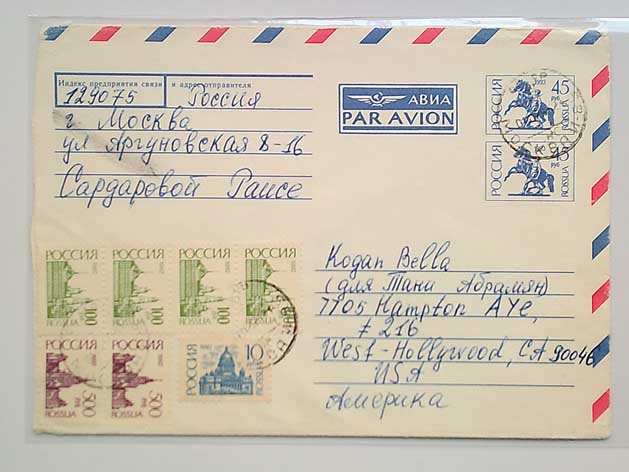 Индекс предприятия связи и адрес отправителя
129075 Россия
г Москва
ул Аргуновская 8-16
Сардаровой Раисе
АВИА
PAR AVION
РОССИЯ 45 РУБ ROSSIJA
РОССИЯ 45 РУБ ROSSIJA
РОССИЯ 100 ROSSIJA
РОССИЯ 100 ROSSIJA
РОССИЯ 100 ROSSIJA
РОССИЯ 100 ROSSIJA
РОССИЯ 500 РУБ ROSSIJA
РОССИЯ 500 РУБ ROSSIJA
РОССИЯ 10 ROSSIJA
Кодан Bella
(для Тани Абрамян)
7705 Hampton AYe,
# 216
West-Hollywood, CA 90046
USA
Америка